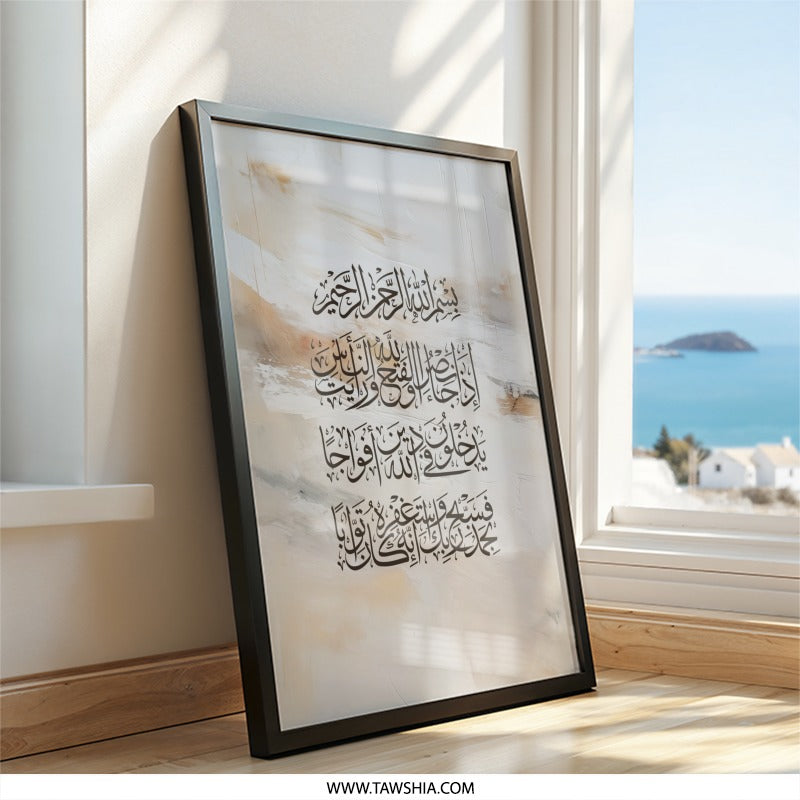 بِسْمِ اللَّهِ الرَّحْمَنِ الرَّحِيمِ
إِذَا جَاءَ نَصْرُ اللَّهِ وَالْفَتْحُ وَرَأَيْتَ النَّاسَ
يَدْخُلُونَ فِي دِينِ اللَّهِ أَفْوَاجًا
فَسَبِّحْ بِحَمْدِ رَبِّكَ وَاسْتَغْفِرْهُ إِنَّهُ كَانَ تَوَّابًا
WWW.TAWSHIA.COM